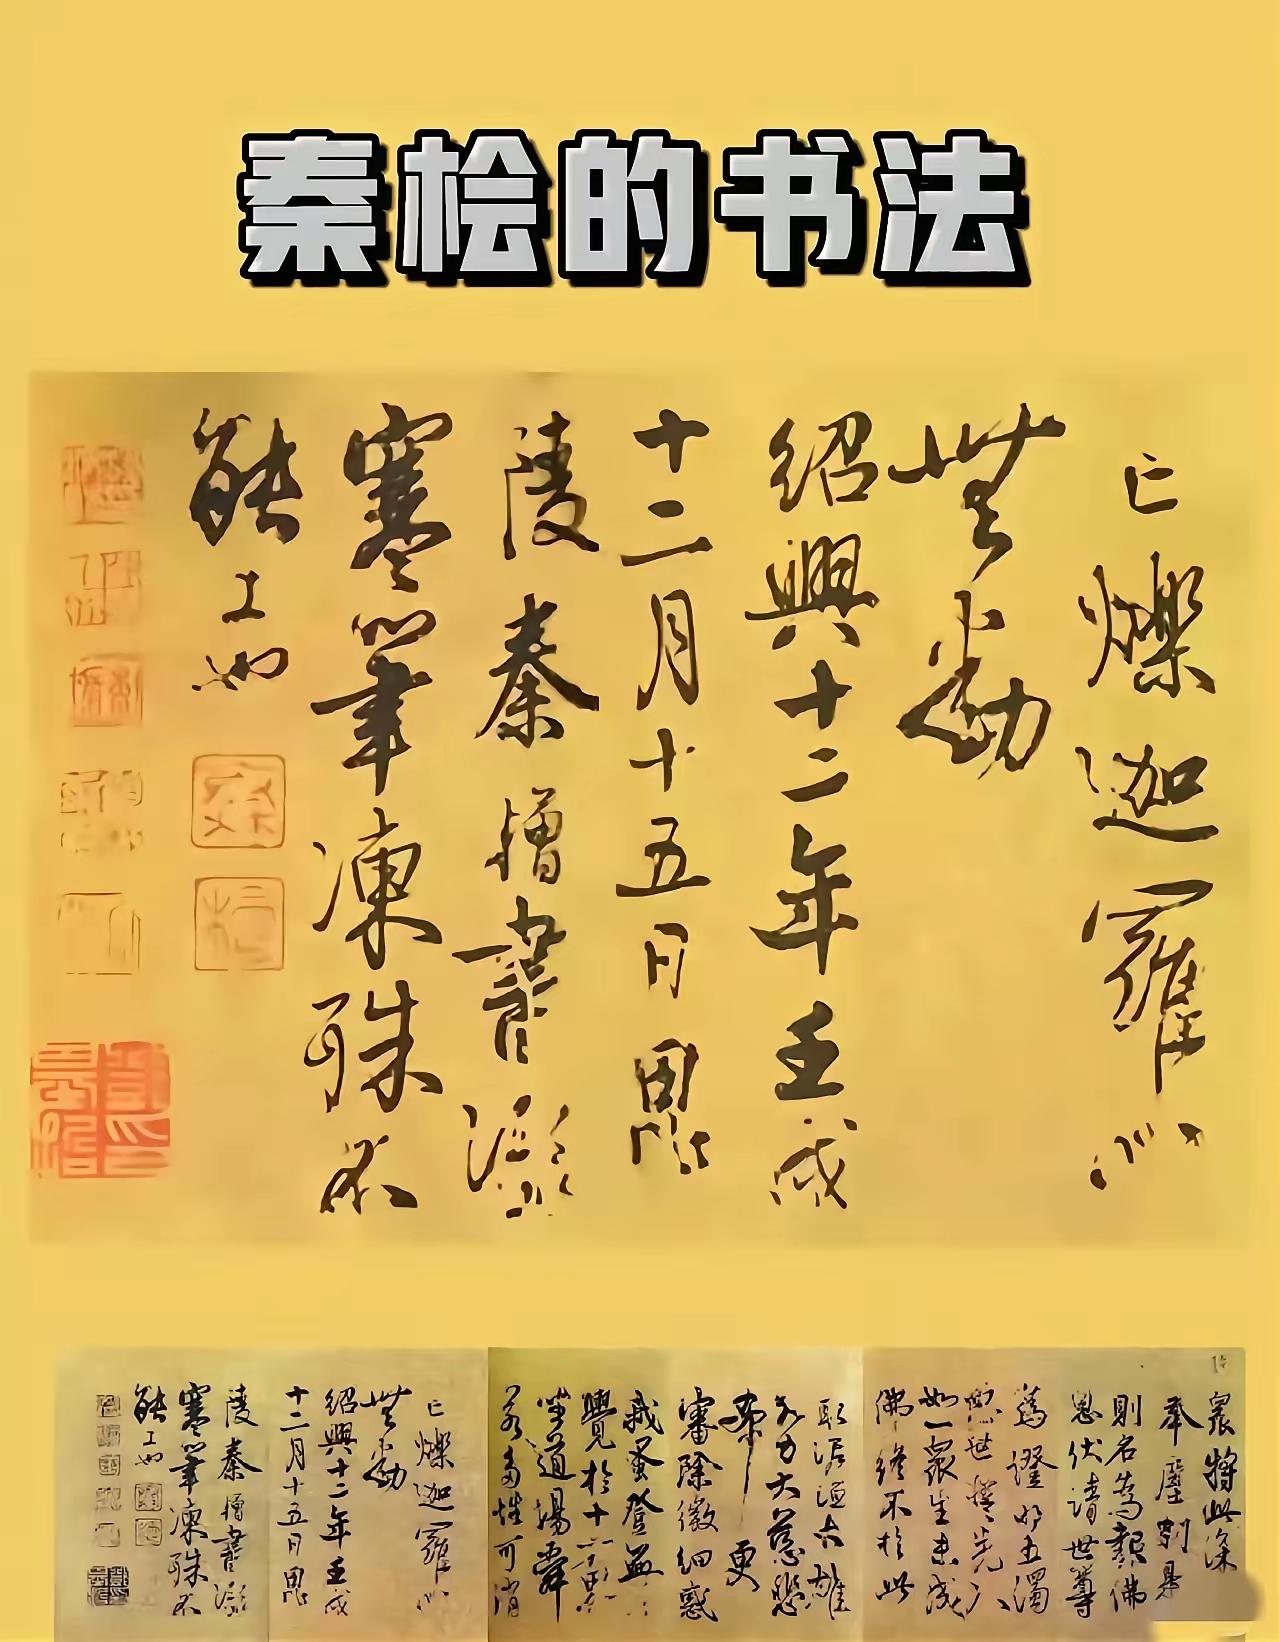 秦桧的书法
亡爍迦羅心
無動
紹興十二年壬戌
十二月十五日
陵秦檜書
寒筆凍殊不
能工也
眾將此深
奉塵刹是
則名為報佛
恩伏請世尊
為證明五濁
惡世誓先入
如一眾生未成
佛終不於此
取泥洹大雄
大力大慈悲
希更
審除微細惑
我蚤登無
覺於十方界
坐道場舜
若多性可消
亡爍迦羅心
無動
紹興十二年壬戌
十二月十五日
陵秦檜書
寒筆凍殊不
能工也